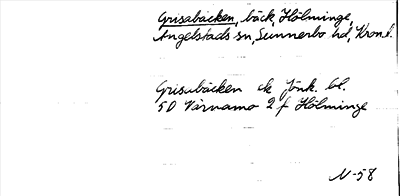 Grisabäcken, bäck, Hölminge,
Angelstads sn, Sunnerbo hd, Kronob.
Grisabäcken ek jönk. bl.
5D Värnamo 2 f Hölminge
N-58